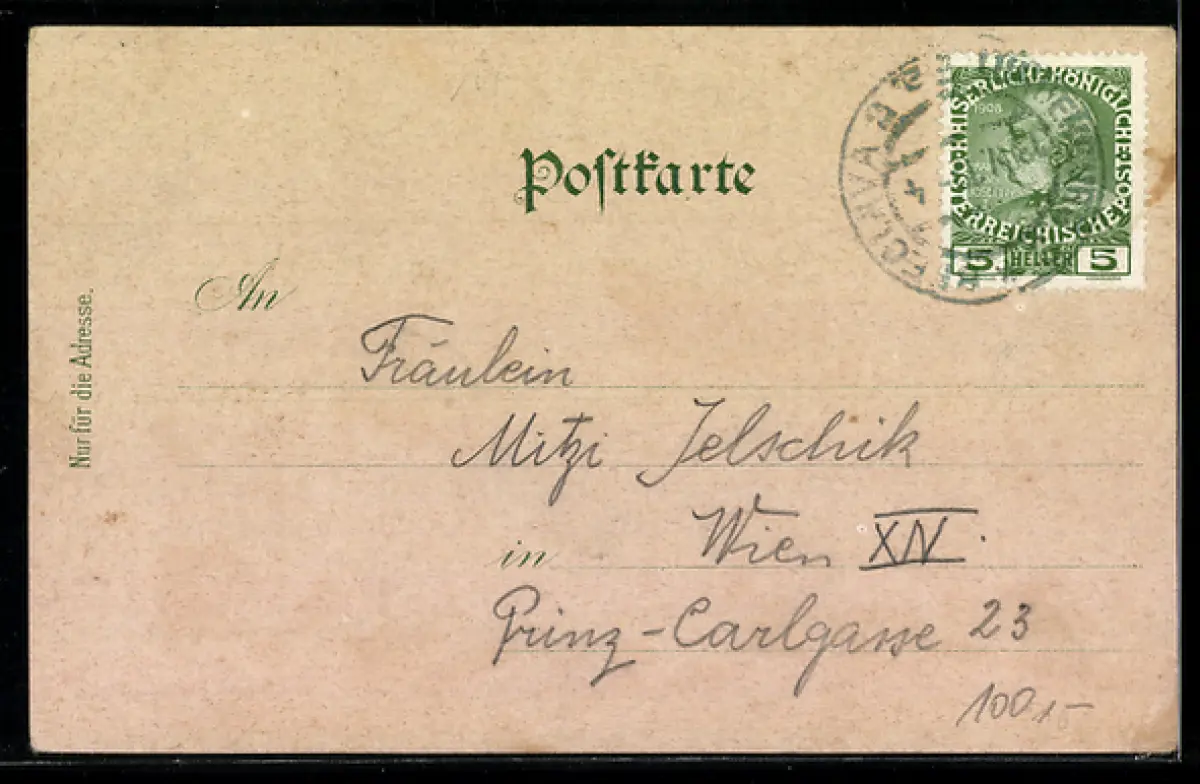 Postkarte
KAISERLICHE KÖNIGLICHE
1908
ÖSTERREICHISCHE POST
5 HELLER 5
An
Fräulein
Mitzi Jelschik
in Wien XIV.
Prinz-Carlgasse 23
Nur für die Adresse.
100,-